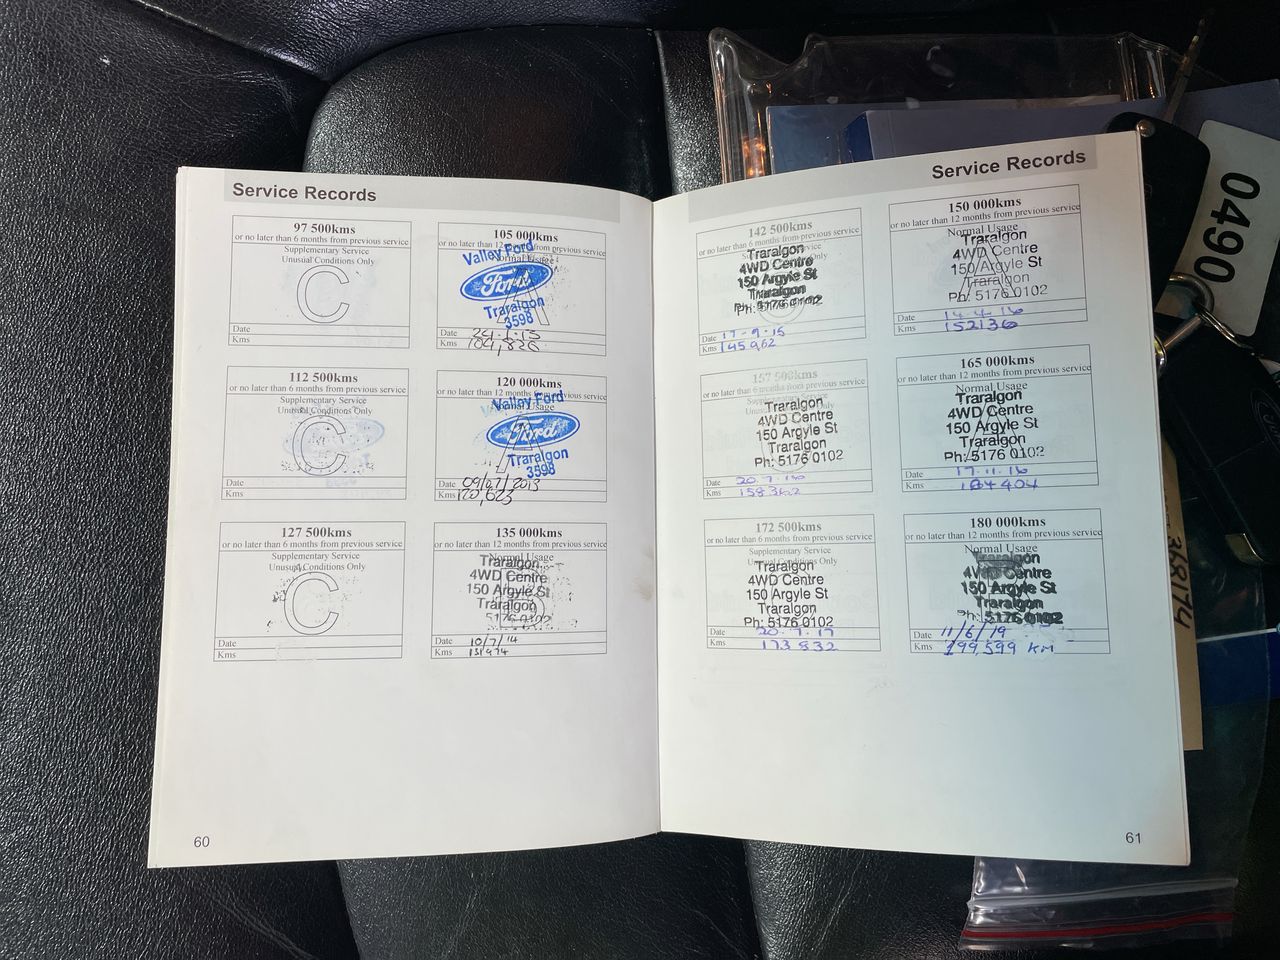 Service Records
97 500kms
or no later than 6 months from previous service
Supplementary Service
Unusual Conditions Only
C
Date
Kms
105 000kms
or no later than 12 months from previous service
Normal Usage
A
Valley Ford
Ford
Traralgon
3598
Date 24.1.13
Kms 104,826
112 500kms
or no later than 6 months from previous service
Supplementary Service
Unusual Conditions Only
C
Date
Kms
120 000kms
or no later than 12 months from previous service
Normal Usage
A
Valley Ford
Ford
Traralgon
3598
Date 09/07/2013
Kms 120,623
127 500kms
or no later than 6 months from previous service
Supplementary Service
Unusual Conditions Only
C
Date
Kms
135 000kms
or no later than 12 months from previous service
Normal Usage
Traralgon
4WD Centre
150 Argyle St
Traralgon
5176 0102
Date 10/7/14
Kms 131974
60
Service Records
142 500kms
or no later than 6 months from previous service
Supplementary Service
Traralgon
4WD Centre
150 Argyle St
Traralgon
Ph: 5176 0102
Date 17-9-15
Kms 145,962
150 000kms
or no later than 12 months from previous service
Normal Usage
Traralgon
4WD Centre
150 Argyle St
Traralgon
Ph: 5176 0102
Date 14-4-16
Kms 152136
157 500kms
or no later than 6 months from previous service
Supplementary Service
Traralgon
4WD Centre
150 Argyle St
Traralgon
Ph: 5176 0102
Date 20.7.16
Kms
165 000kms
or no later than 12 months from previous service
Normal Usage
Traralgon
4WD Centre
150 Argyle St
Traralgon
Ph: 5176 0102
Date 17.11.16
Kms 164404
172 500kms
or no later than 6 months from previous service
Supplementary Service
Unusual Conditions Only
Traralgon
4WD Centre
150 Argyle St
Traralgon
Ph: 5176 0102
Date 20.7.17
Kms 173832
180 000kms
or no later than 12 months from previous service
Normal Usage
Traralgon
4WD Centre
150 Argyle St
Traralgon
Ph: 5176 0102
Date 11/6/19
Kms 199,599 KM
61
0490